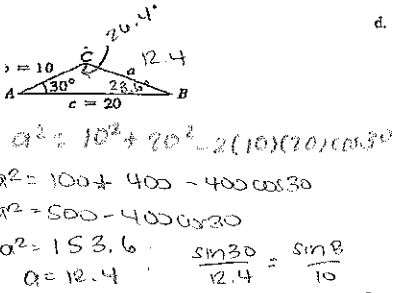 26.4°
d.
C
12.4
b = 10
a
A 30° 23.6° B
c = 20
a² = 10² + 20² - 2(10)(20)cos30
a² = 100 + 400 - 400cos30
a² = 500 - 400cos30
a² = 153.6
a = 12.4
sin30/12.4 = sinB/10